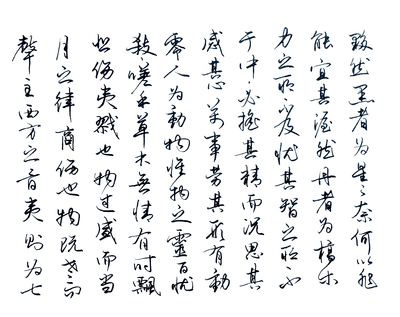 聲主西方之音夷則为七
月之律商伤也物既老而
悲伤夷戮也物过盛而当
殺嗟乎草木無情有时飄
零人为動物惟物之靈百忧
感其心萬事劳其形有動
于中必搖其精而况思其
力之所不及忧其智之所不
能宜其渥然丹者为槁木
黟然黑者为星々奈何以非